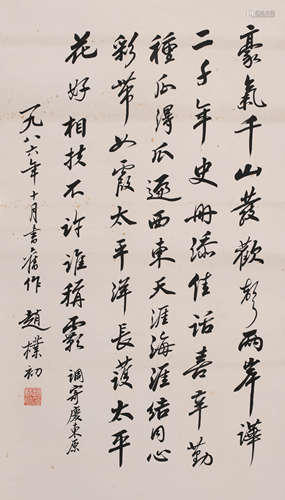 豪氣千山發歡聲兩岸譁
二千年史冊添佳話喜辛勤
種瓜得瓜西東天涯海涯結同心
彩帶如霞太平洋長護太平
花好相扶不許誰稱霸 調寄慶東原
一九八六年十月書舊作 趙樸初